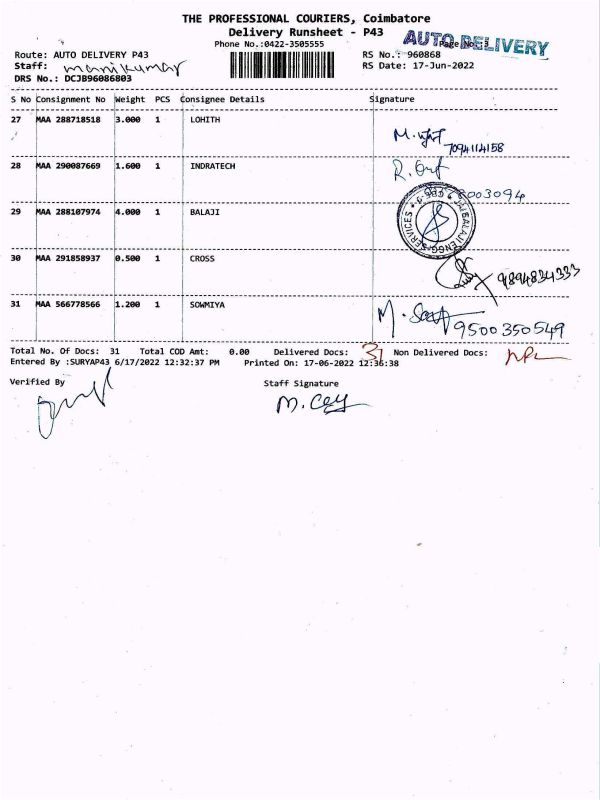 THE PROFESSIONAL COURIERS, Coimbatore
Delivery Runsheet - P43
Phone No.:0422-3505555
AUTO DELIVERY
Page No: 3
Route: AUTO DELIVERY P43
RS No.: 960868
Staff: manikumar
RS Date: 17-Jun-2022
DRS No.: DCJB96086803
S No Consignment No Weight PCS Consignee Details Signature
27 MAA 288718518 3.000 1 LOHITH
7094114158
28 MAA 290087669 1.600 1 INDRATECH
29 MAA 288107974 4.000 1 BALAJI
30 MAA 291858937 0.500 1 CROSS
9894834333
31 MAA 566778566 1.200 1 SOWMIYA
9500350549
Total No. Of Docs: 31 Total COD Amt: 0.00 Delivered Docs: 31 Non Delivered Docs:
Entered By :SURYAP43 6/17/2022 12:32:37 PM Printed On: 17-06-2022 12:36:38
Verified By Staff Signature